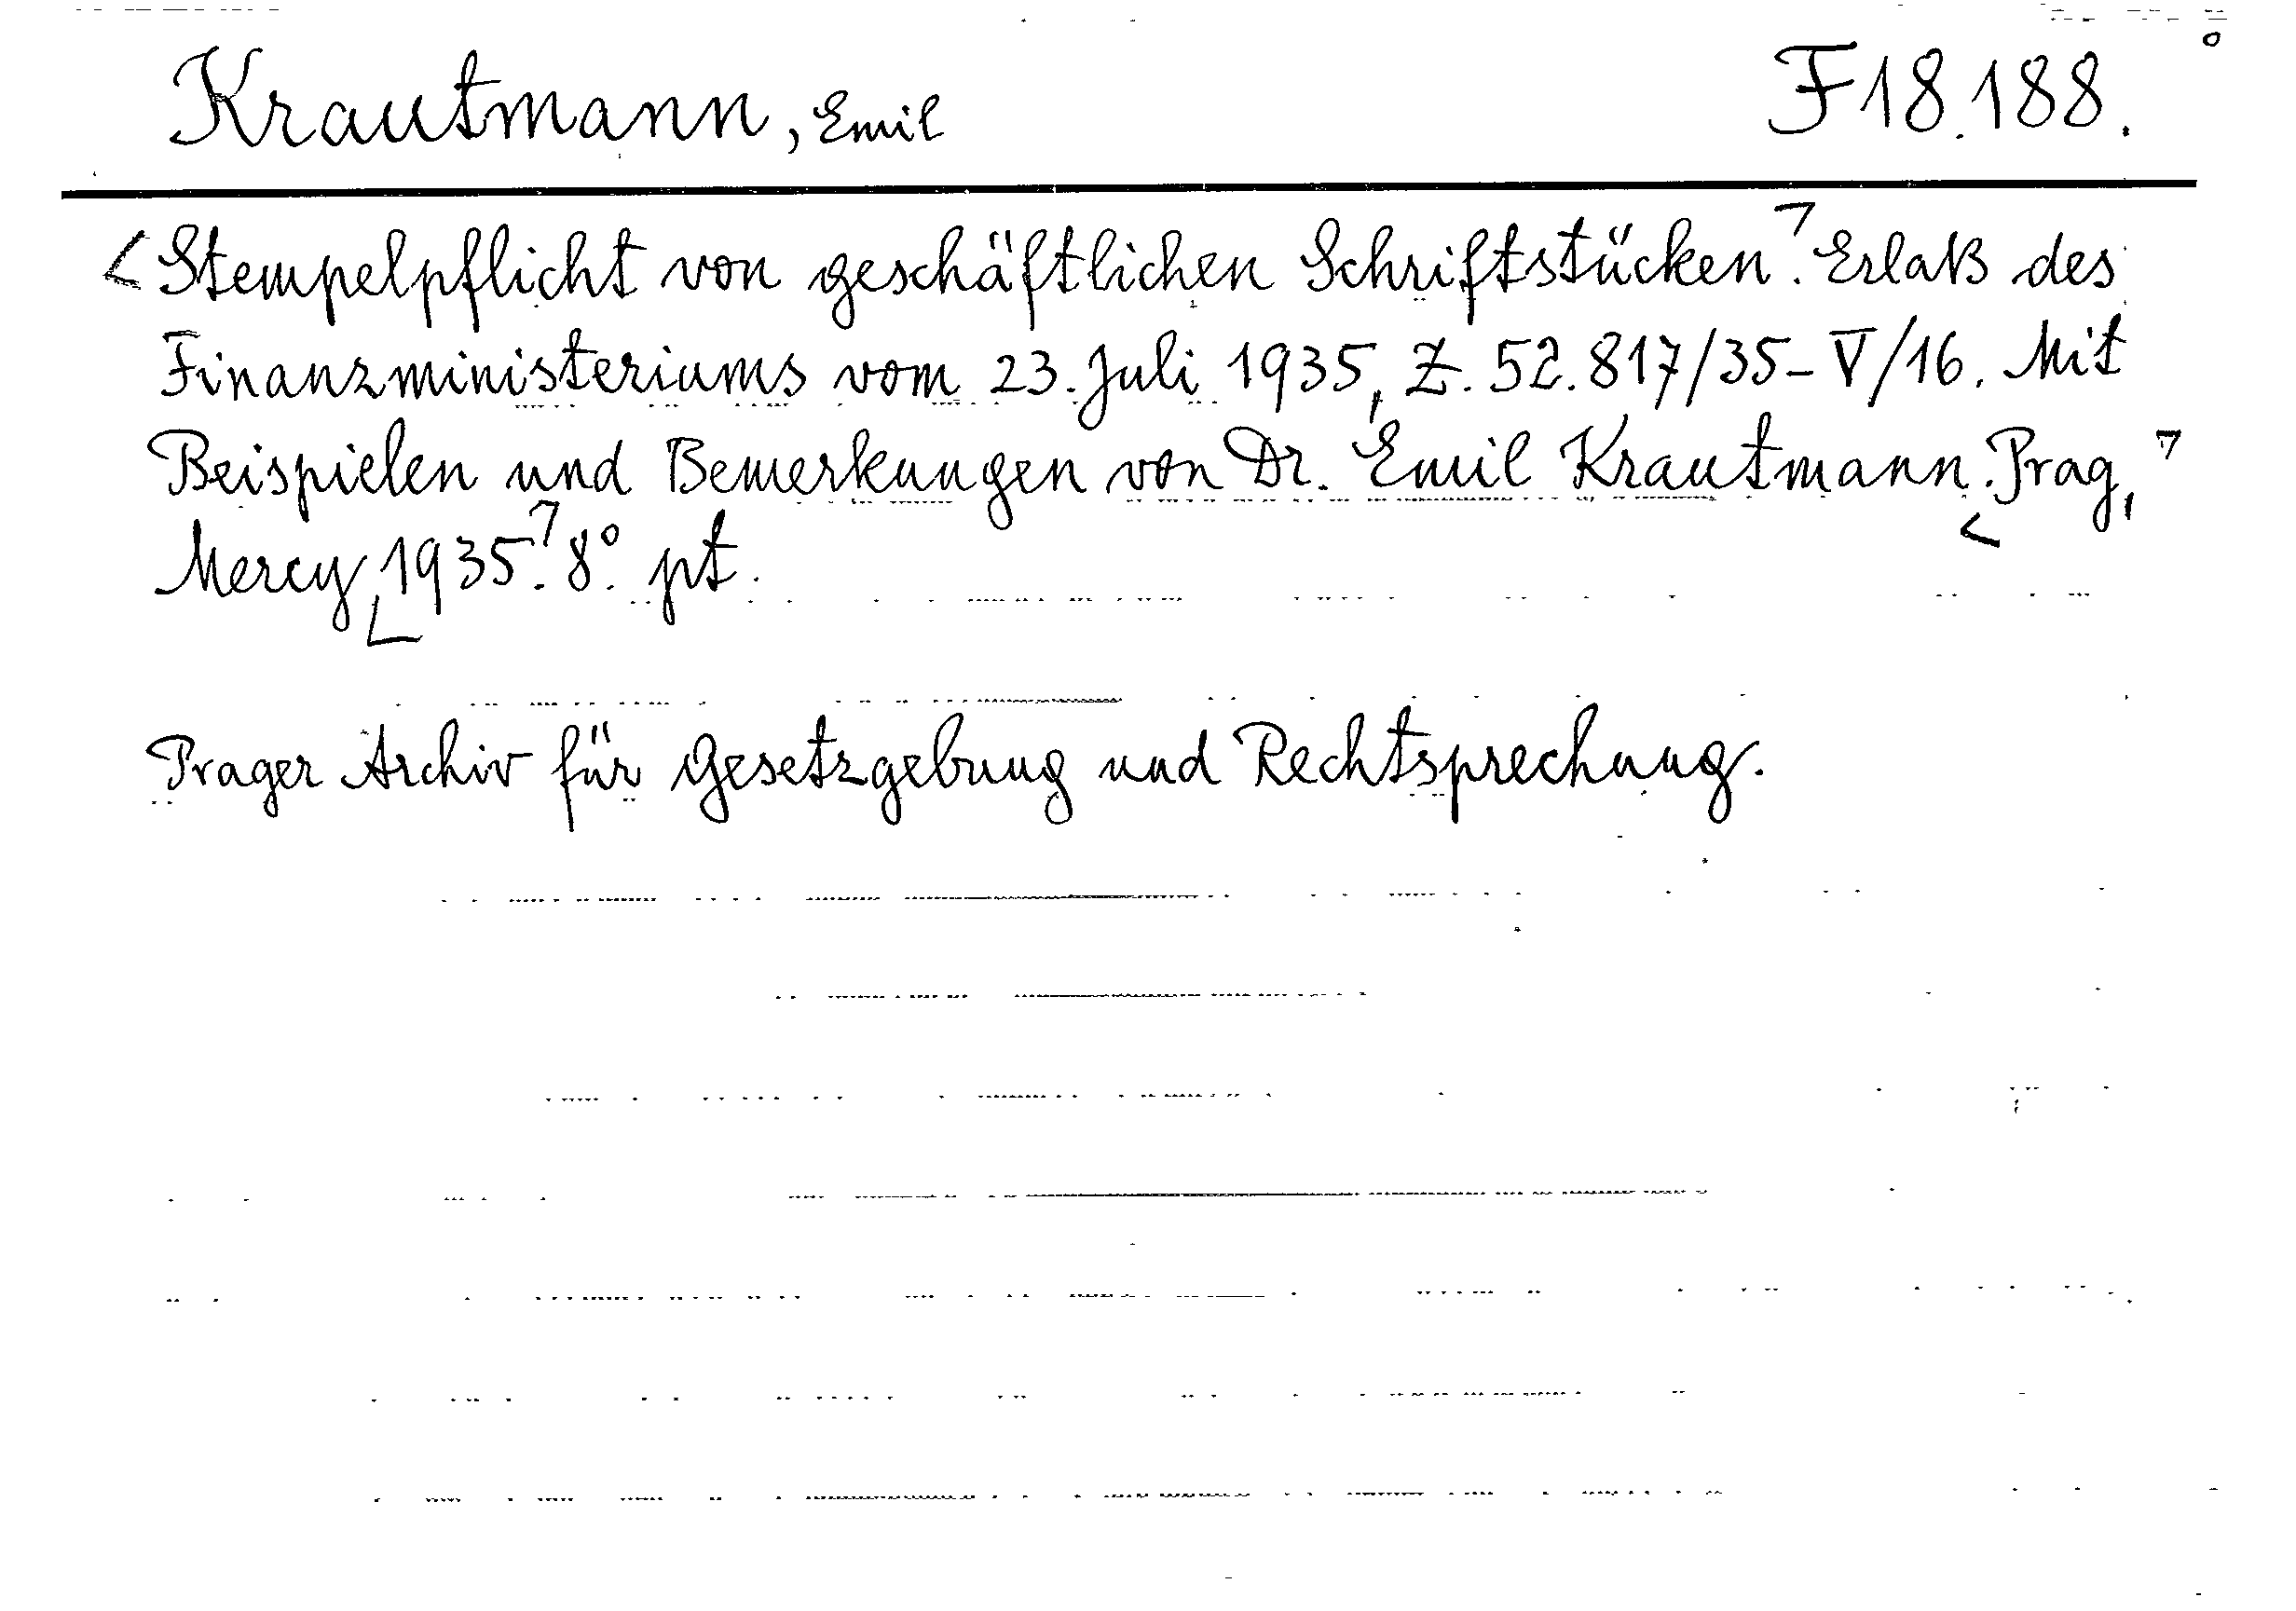 Krautmann, Emil F18.188.
<Stempelpflicht von geschäftlichen Schriftstücken.> Erlaß des
Finanzministeriums vom 23. Juli 1935, Z. 52.817/35-V/16. Mit
Beispielen und Bemerkungen von Dr. Emil Krautmann. <Prag,>
Mercy, <1935.> 8°. pt.
Prager Archiv für Gesetzgebung und Rechtsprechung.